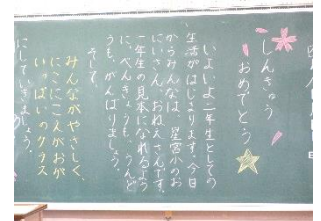 しんきゅう
おめでとう
いよいよ二年生としての
生活がはじまります。今日
からみんなは、星宮小のお
にいさん、おねえさんです。
一年生の見本になれるよう
に、べんきょうも、うんど
うも、がんばりましょう。
そして、
みんながやさしく、
にこにこえがおが
いっぱいのクラス
にしていきましょう。